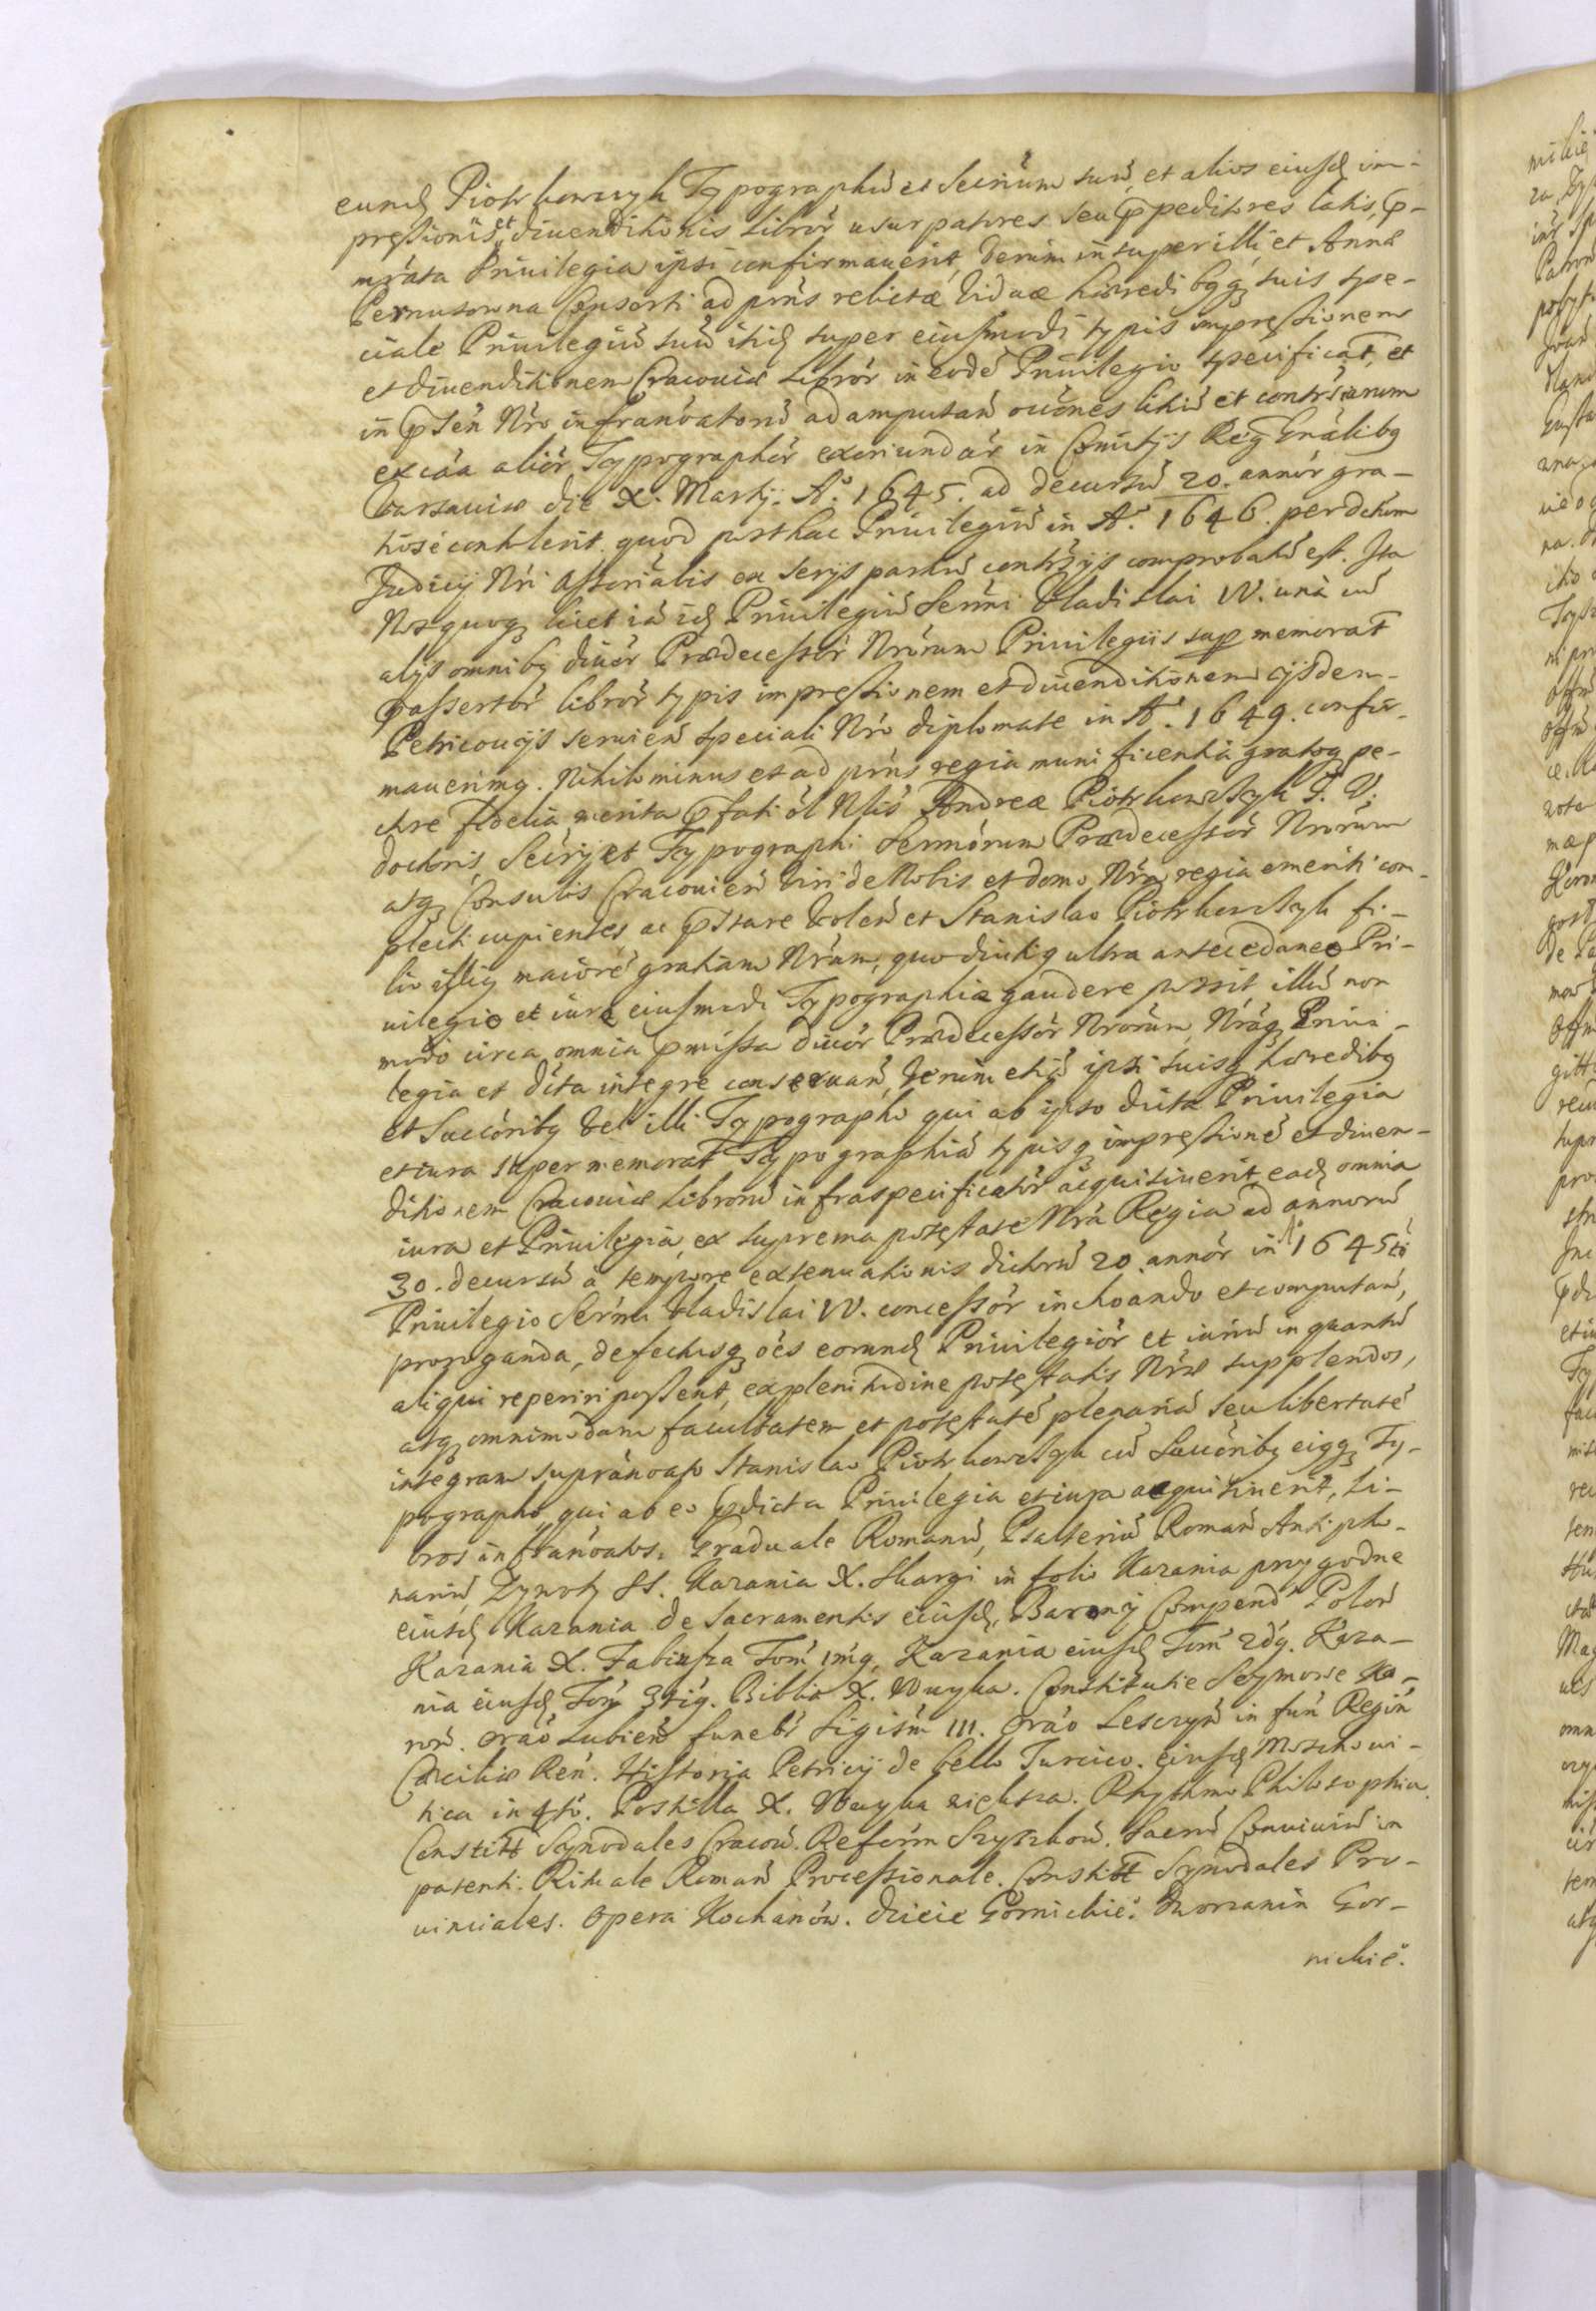 eund Piotrkowczyk Typographũ et Secrium suũ, et alios eiusd im-
pressionis et diuenditionis Libror̃ usurpatores seu ꝓpeditores latis, p-
mr̃ata Priuilegia ipsi confirmauerit, Verum insuper illi, et Annæ
Pernusowna Consorti ad pñs relictæ Viduæ hæredibqꝫ suis spe-
ciale Priuilegiũ suũ itid super eiusmodi typis impressionem
et diuenditionem Cracouiæ Libror̃ in eodẽ Priuilegio specificat̃, et
in p̃sen Nro infranõatorũ ad amputañ occõnes litiũ et contr̃siarum
ex cãa alior̃ Typographor̃ exoriundar̃ in Comitijs Reg Gnãlibq
Varsauiæ die X. Martij. Aº 1645. ad decursũ 20. annor̃ gra-
tiosè contulerit. quod posthac Priuilegiũ in Aº 1646. per dictum
Judicij Nri Assorialis ex serijs partiũ contr̃ijs comprobatũ est. Ita
Nos quoqꝫ licet iã id Priuilegiũ Sermi Vladislai IV. unà cũ
alijs omnibq diuor̃ Prædecessor̃ Nrorum Priuilegiis sup memorat̃
passertor̃ libror̃ typis impressionem et diuenditionem ijsdem
Petricouijs seruien speciali Nro diplomate in Aº 1649. confir-
mauerimq. Nihilominus et ad pñs regia munificentia gratoqꝫ pe-
ctore fidelia merita p̃fati ol Nlis Andreæ Piotrkowczyk J. V.
doctoris, Secrij et Typographi Sermorum Prædecessor̃ Nrorum
atqꝫ Consulis Cracouieñ Viri de Nobis et domo Nra regia emeriti com-
plecti cupientes ac p̃stare Volen et Stanislao Piotrkowczyk fi-
lio illiq maiorẽ gratiam Nram, quo diutiq ultra antecedaneo Pri-
uilegio et iure eiusmodi Typographiæ gaudere possit illũ non
modo circa omnia p̃missa diuor̃ Prædecessor̃ Nrorum, Nraqꝫ Priui-
legia et dicta integre conseruañ, Verum etiã ipsi suisqꝫ hæredibq
et Succoribq vel illi Typographo qui ab ipso dicta Priuilegia
et iura super memorat̃ Typographiã typisqꝫ impressionẽ et diuen-
ditionem Cracouiæ librorũ infraspecificator̃ acquisiuerit, ead omnia
iura et Priuilegia, ex suprema potestate Nra Regia ad annorũ
30. decursũ à tempore extenuationis dictorũ 20. annor̃ in Aº 1645to
Priuilegio Sermi Vladislai IV. concessor̃ inchoando et computañ,
proroganda, defectusqꝫ oẽs eorund Priuilegior̃ et iuriũ in quantũ
aliqui reperiri possent, explenitudine potestatis Nræ supplendos,
atqꝫ omnimodam facultatem et potestatẽ plenariã seu libertatẽ
integram supranõato Stanislao Piotrkowczyk cũ Succoribq eiqqꝫ Ty-
pographo, qui ab eo p̃dicta Priuilegia et iura acquisiuerit, Li-
bros infranõatos. Graduale Romanũ, Psalteriũ Romañ Antipho-
nariũ, Zywoty SS. Kazania X. Skargi in folio Kazania przygodne
eiusd Kazania de Sacramentis eiusd, Baronij Compend Poloñ
Kazania X. Fabiusza Tom 1mq, Kazania eiusd Tom 2dq. Kaza-
nia eiusd Tom 3tiq. Biblia X. Wuyka. Constitutie Seymowe Ko-
ron. Orao Lubień funebr Sigism III. Orao Lesczyń in fun Regin
Cæciliæ Ren. Historia Petricij de bello Turcico. eiusd Moschoui-
tica in 4to. Postilla X. Wuyka większa. Rhythmo Philosophia.
Constitt Synodales Cracow. Reform Szyszkow. Sacrũ Conuiuiũ in
patenti. Rituale Romañ Processionale. Constitt Synodales Pro-
uinciales. Opera Kochanow. Dzieie Gornickie. Dworzanin Gor-
nickiē.